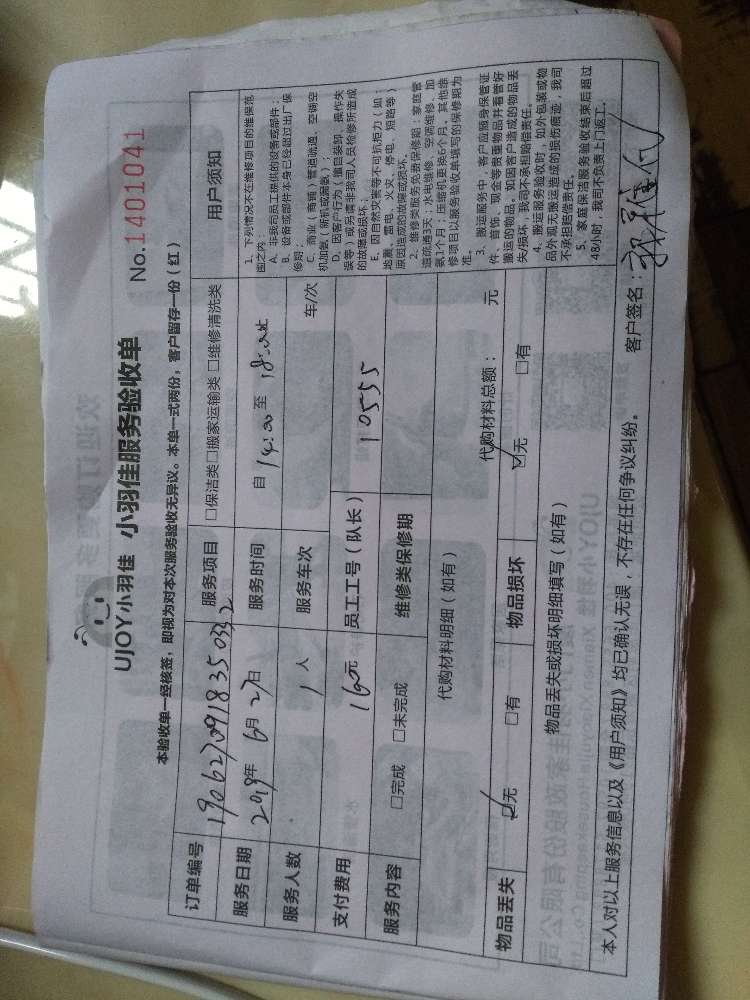 UJOY小羽佳 小羽佳服务验收单
No.1401041
本验收单一经核签，即视为对本次服务验收无异议。本单一式两份，客户留存一份（红）
订单编号
服务项目 □保洁类□搬家运输类 □维修清洗类
服务日期 2019年 6月 27日 服务时间 自 14:00 至 18:00止
服务人数 1 人 服务车次 车/次
支付费用 160元 员工工号（队长） 10555
服务内容 □完成 □未完成 维修类保修期
代购材料明细（如有）
代购材料总额： 元
物品丢失 ☑无 □有 物品损坏 ☑无 □有
物品丢失或损坏明细填写（如有）
用户须知
1、下列情况不在维修项目的维保范
围之内：
A、非我司员工提供的设备或部件；
B、设备或部件本身已经超过出厂保
修期；
C、商业（商铺）管道疏通、空调空
机加氨（新机或漏氨）；
D、因客户行为（擅自装卸、操作失
误等）或另请非我司人员检修所造成
的故障或损坏；
E、因自然灾害等不可抗拒力（如
地震、雷电、火灾、停电、短路等）
原因造成的故障或损坏。
2、维修类服务免费保修期：家庭管
道疏通3天；水电维修、空调维修、加
氨1个月；压缩机更换6个月。其他维
修项目以服务验收单填写的保修期为
准。
3、搬运服务中，客户应随身保管证
件、首饰、现金等贵重物品并看管好
搬运的物品。如因客户造成的物品丢
失损坏，我司不承担赔偿责任。
4、搬运服务验收时，如外包装或物
品外观无搬运造成的损伤痕迹，我司
不承担赔偿责任。
5、家庭保洁服务验收结束后超过
48小时，我司不负责上门返工。
本人对以上服务信息以及《用户须知》均已确认无误，不存在任何争议纠纷。
客户签名：